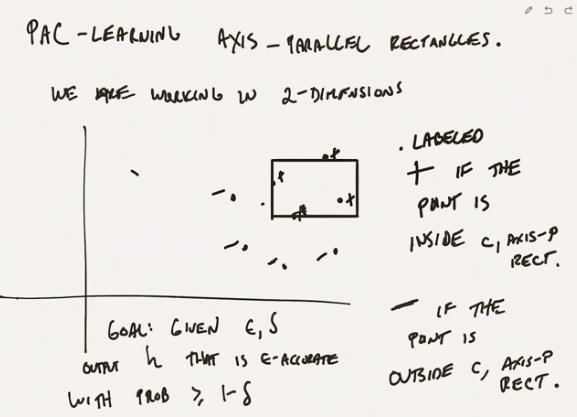 PAC-LEARNING AXIS-PARALLEL RECTANGLES.
WE ARE WORKING IN 2-DIMENSIONS
. LABELED
+ IF THE
POINT IS
INSIDE C, AXIS-P
RECT.
- IF THE
POINT IS
OUTSIDE C, AXIS-P
RECT.
GOAL: GIVEN ε, δ
OUTPUT h THAT IS ε-ACCURATE
WITH PROB ≥ 1-δ